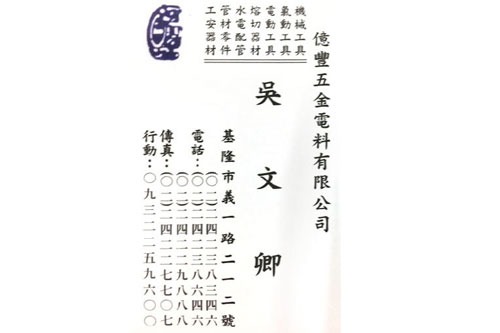 億豐五金電料有限公司
機械工具
氣動工具
電動工具
熔切器材
水電配管
管材零件
工安器材
吳文卿
基隆市義一路二一二號
電話：(〇二)二四二三八三四六
(〇二)二四二三八六四六
(〇二)二四二二九八八八
傳真：(〇二)二四二二七七〇七
行動：〇九三二二五九六〇〇